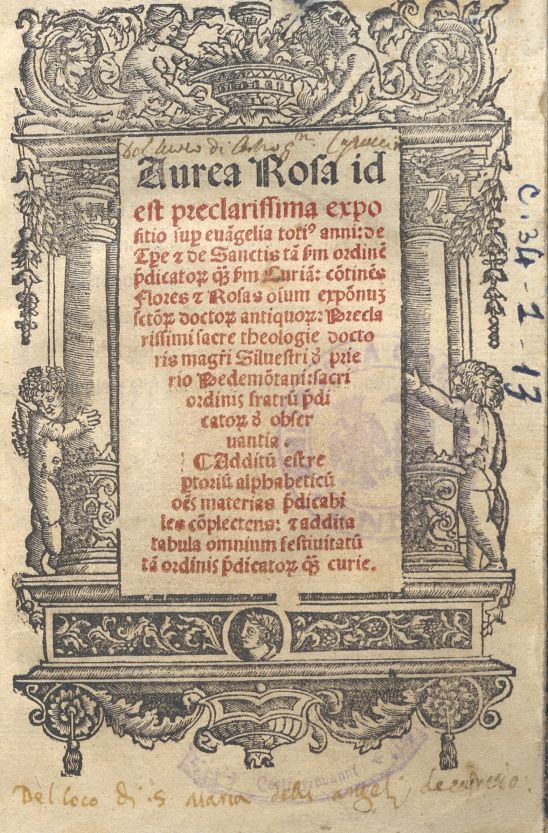 Del luoco di
Aurea Rosa id
est preclarissima expo
sitio sup evãgelia totiꝰ anni: de
Tpe ⁊ de Sanctis tã ẜm ordinẽ
p̃dicatoꝝ q̃ȝ ẜm Curiã: cõtinẽs
Flores ⁊ Rosas oĩum expõnuȝ
sctõꝝ doctoꝝ antiquoꝝ: Precla
rissimi sacre theologie docto
ris magr̃i Silvestri ð prie
rio Pedemõtani: sacri
ordinis fratrũ p̃di
catoꝝ ð obser
vantia.
⁌ Additũ est re
ptoriũ alphabeticũ
oẽs materias p̃dicabi
les cõplectens: ⁊ addita
tabula omnium festivitatũ
tã ordinis p̃dicatoꝝ q̃ȝ curie.
C. 34-2-13
Del loco di S Maria delli angeli